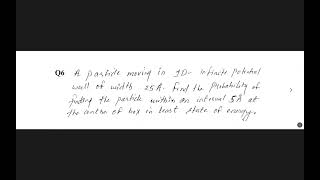 Q6 A particle moving in 1D- infinite potential
well of width 25Å. Find the Probability of
finding the particle within an interval 5Å at
the centre of box in least state of energy.